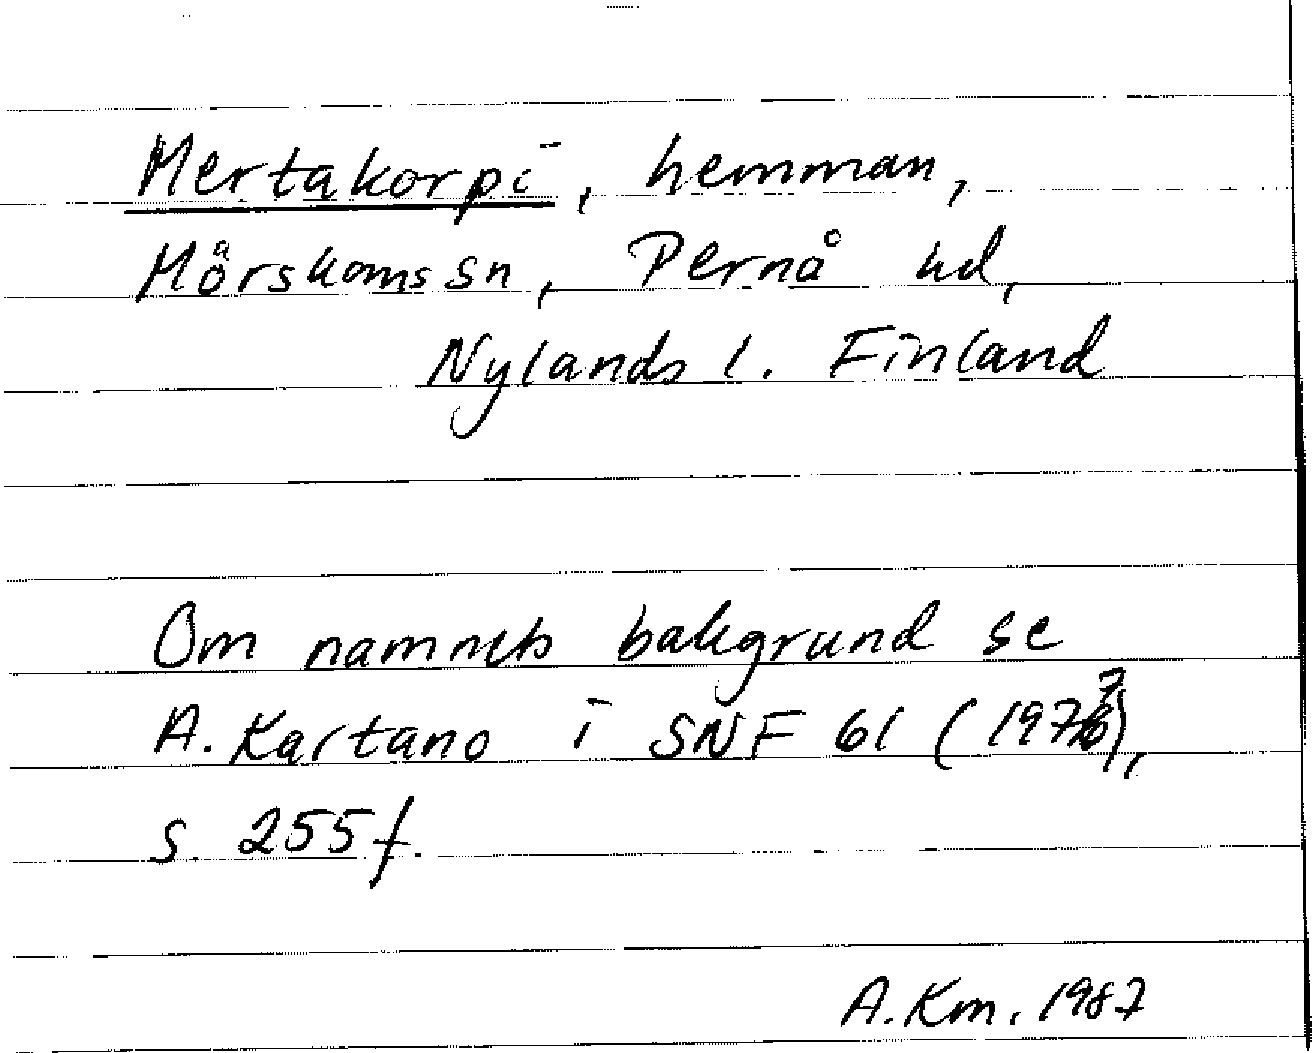 Mertakorpi, hemman,
Mörskoms sn, Pernå hd,
Nylands l. Finland
Om namnets bakgrund se
A. Kartano i SNF 61 (1973),
s. 255 f.
A.Km. 1987